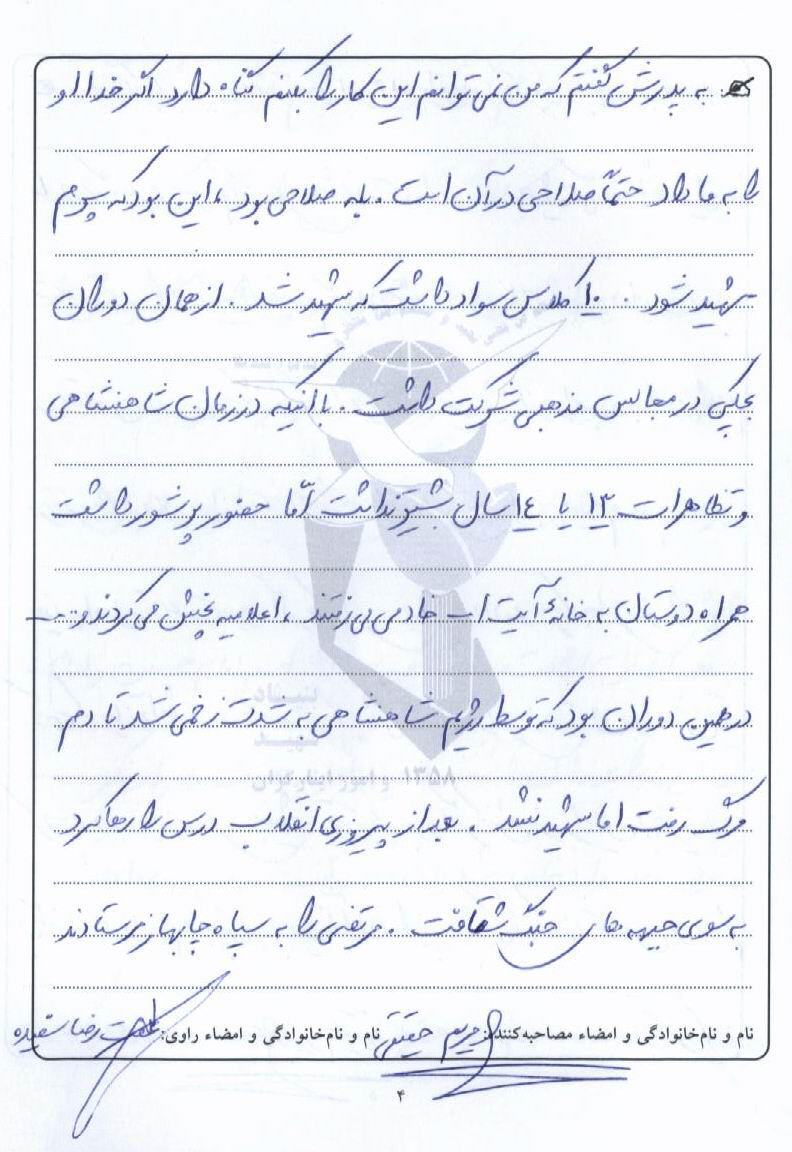 به پدرش گفتم که من نمی توانم این کار را بکنم گناه دارد اگر خدا او
را به ما داد حتماً صلاحی در آن است . بله صلاحی بود ، این بود که پسرم
شهید شود . ۱۰ کلاس سواد داشت که شهید شد . از همان دوران
بچگی در مجالس مذهبی شرکت داشت . با اینکه در زمان شاهنشاهی
و تظاهرات ۱۳ یا ۱۴ سال بیشتر نداشت امّا حضور پرشور داشت
همراه دوستان به خانهٔ آیت ا... خادمی می رفتند ، اعلامیه پخش می کردند و ...
در همین دوران بود که توسط رژیم شاهنشاهی به شدت زخمی شد تا دم
مرگ رفت اما شهید نشد . بعد از پیروزی انقلاب درس را رها کرد
به سوی جبهه های جنگ شتافت . مرتضی را به سپاه چابهار فرستادند
نام و نام‌خانوادگی و امضاء مصاحبه‌کننده: مریم حقیقی نام و نام‌خانوادگی و امضاء راوی: رضا
۴
بنیاد
شهید
و امور ایثارگران
۱۳۵۸